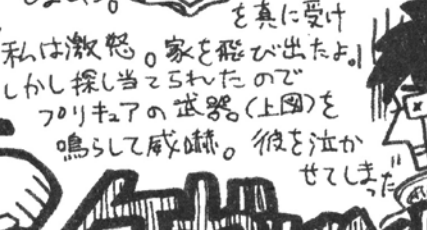 を真に受け
私は激怒。家を飛び出たよ。
しかし探し当てられたので
プリキュアの武器(上図)を
鳴らして威嚇。彼を泣か
せてしまった